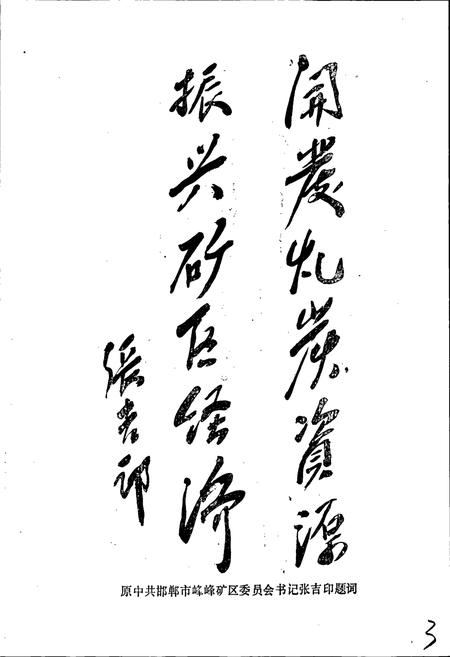 開發礼炭資源
振兴矿区经济
張吉印
原中共邯郸市峰峰矿区委员会书记张吉印题词
3